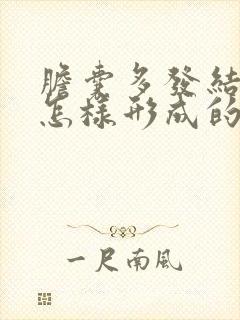 膽囊多發結
怎樣形成的
一尺南風